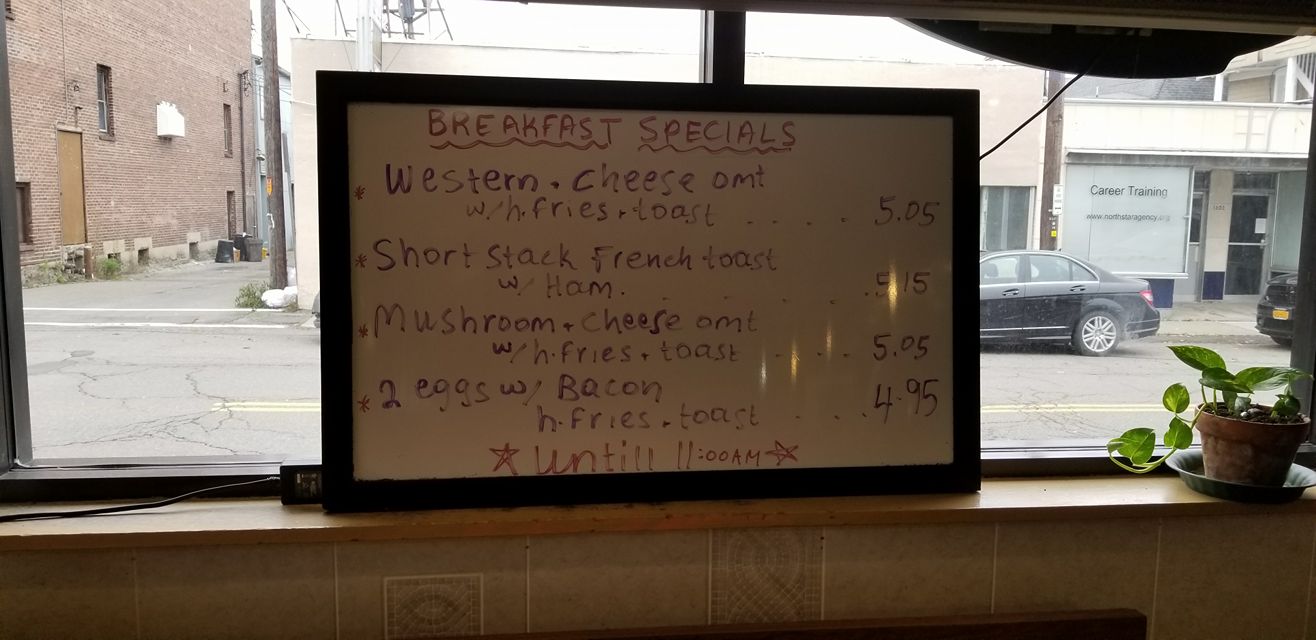 BREAKFAST SPECIALS
* Western + cheese omt
w/h.fries + toast .... 5.05
* Short Stack French toast
w/ Ham. .... 5.15
* Mushroom + cheese omt
w/h.fries + toast .... 5.05
* 2 eggs w/ Bacon
h.fries + toast .... 4.95
☆ Untill 11:00AM ☆
Career Training
www.northstaragency.org